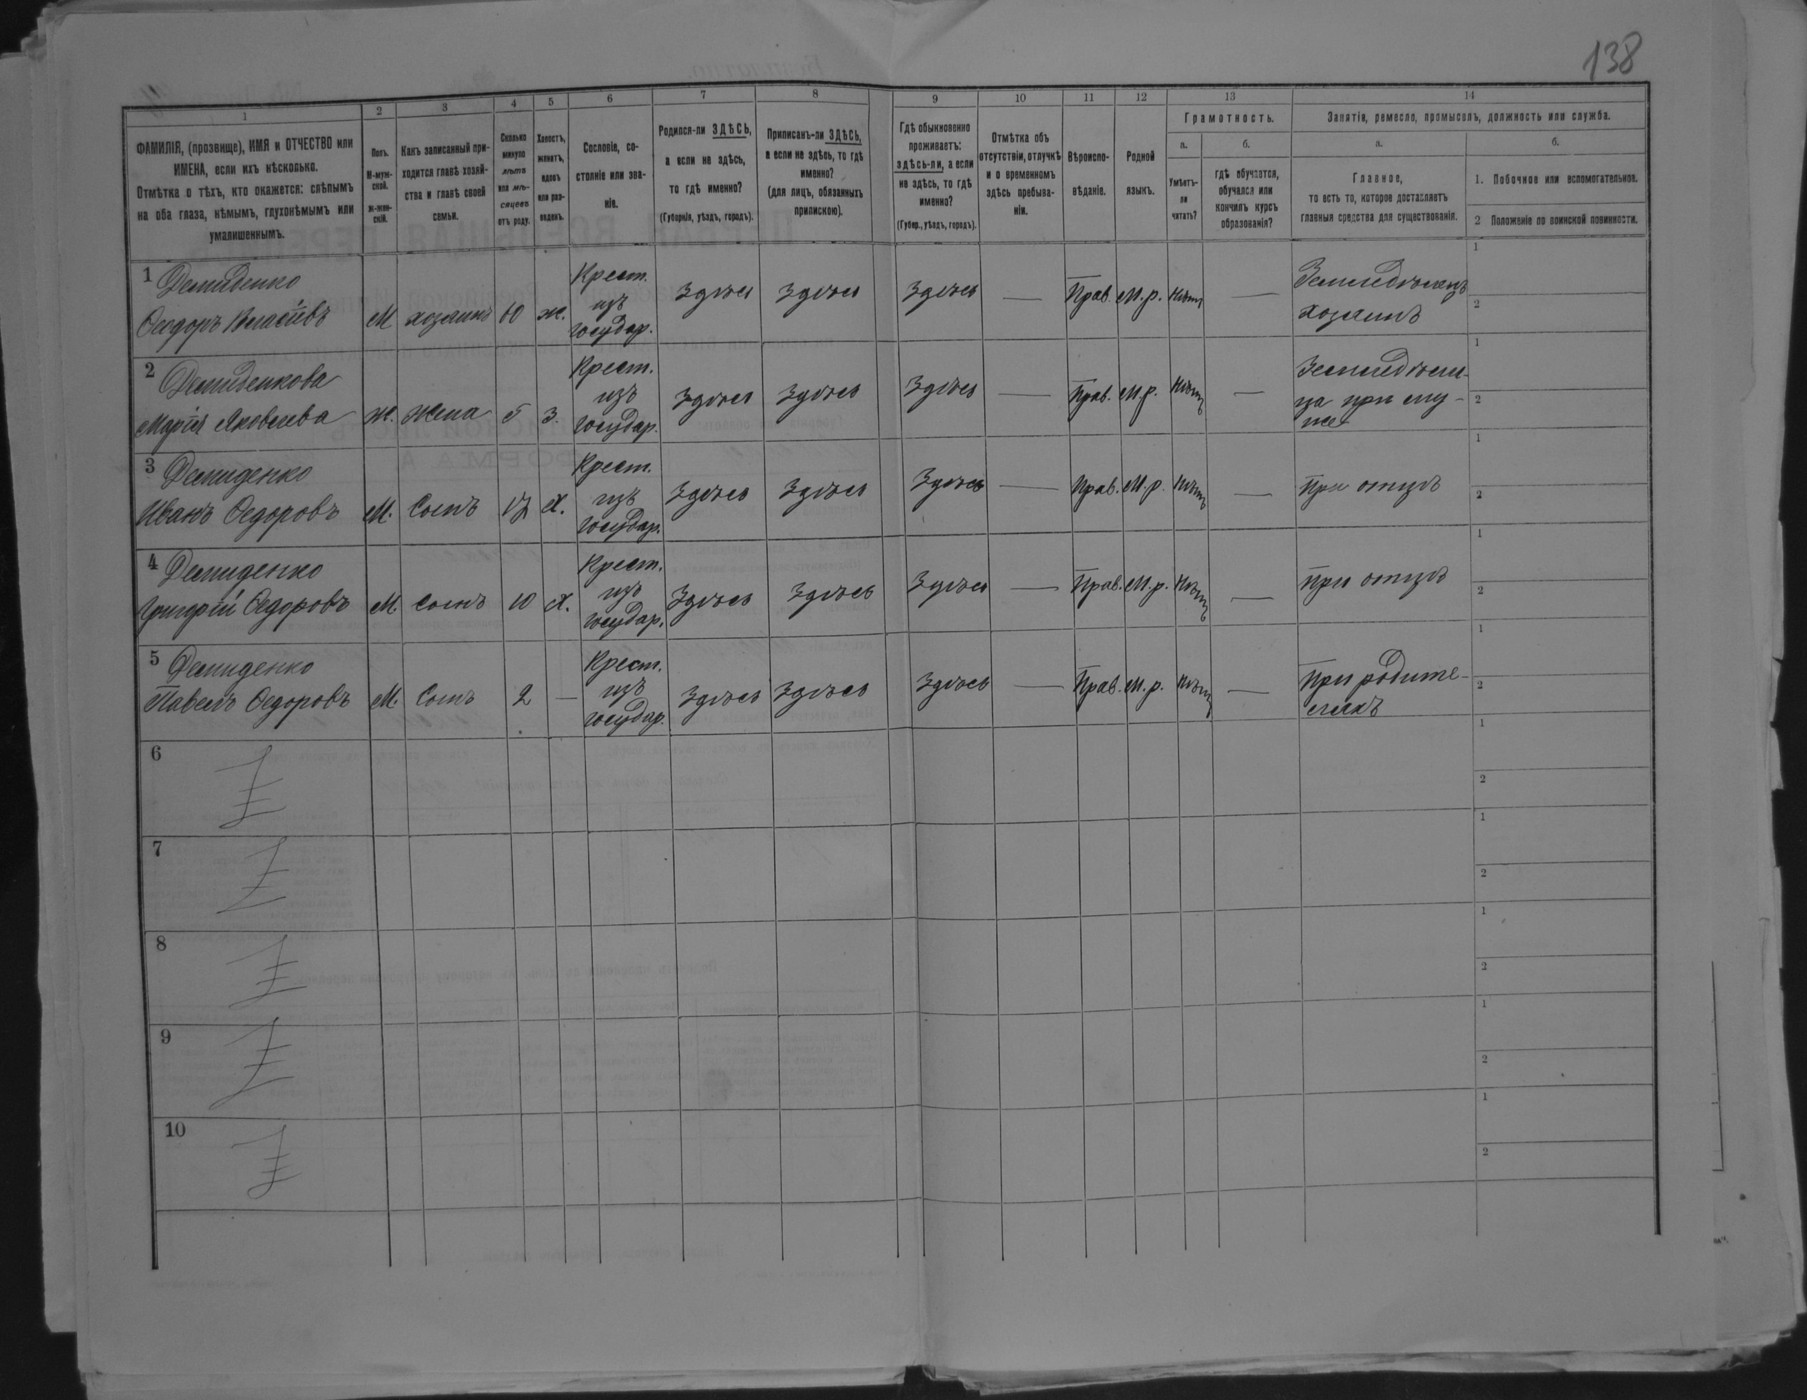 138
1 2 3 4 5 6 7 8 9 10 11 12 13 14
ФАМИЛІЯ, (прозвище), ИМЯ и ОТЧЕСТВО или
ИМЕНА, если ихъ нѣсколько.
Отмѣтка о тѣхъ, кто окажется: слѣпымъ
на оба глаза, нѣмымъ, глухонѣмымъ или
умалишеннымъ.
Полъ.
М-муж-
ской.
Ж-жен-
скій.
Какъ записанный при-
ходится главѣ хозяй-
ства и главѣ своей
семьи.
Сколько
минуло
лѣтъ
или мѣ-
сяцевъ
отъ роду.
Холостъ,
женатъ,
вдовъ
или раз-
веденъ.
Сословіе, со-
стояніе или зва-
ніе.
Родился-ли ЗДѢСЬ,
а если не здѣсь,
то гдѣ именно?
(Губернія, уѣздъ, городъ).
Приписанъ-ли ЗДѢСЬ,
а если не здѣсь, то гдѣ
именно?
(для лицъ, обязанныхъ
припискою).
Гдѣ обыкновенно
проживаетъ:
здѣсь-ли, а если
не здѣсь, то гдѣ
именно?
(Губер., уѣздъ, городъ).
Отмѣтка объ
отсутствіи, отлучкѣ
и о временномъ
здѣсь пребыва-
ніи.
Вѣроиспо-
вѣданіе.
Родной
языкъ.
Грамотность.
а.
Умѣетъ-
ли
читать?
б.
гдѣ обучается,
обучался или
кончилъ курсъ
образованія?
Занятіе, ремесло, промыселъ, должность или служба.
а.
Главное,
то есть то, которое доставляетъ
главныя средства для существованія.
б.
1. Побочное или вспомогательное.
2 Положеніе по воинской повинности.
1 Демиденко Крест. Земледѣлецъ 1
Ѳеодоръ М хозяинъ ж. изъ Здѣсь Здѣсь Здѣсь — Прав. М.р. Нѣтъ — хозяинъ 2
государ.
2 Демиденкова Крест. Земледѣли- 1
Марія Яковлева Ж. Жена з. изъ Здѣсь Здѣсь Здѣсь — Прав. М.р. Нѣтъ — ца при му- 2
государ. же
3 Демиденко Крест. 1
Иванъ Ѳедоровъ М. Сынъ 17 Х. изъ Здѣсь Здѣсь Здѣсь — Прав. М.р. Нѣтъ — При отцѣ 2
государ.
4 Демиденко Крест. 1
Григорій Ѳедоровъ М. Сынъ 10 Х. изъ Здѣсь Здѣсь Здѣсь — Прав. М.р. Нѣтъ — При отцѣ 2
государ.
5 Демиденко Крест. При родите- 1
Павелъ Ѳедоровъ М. Сынъ 2 — изъ Здѣсь Здѣсь Здѣсь — Прав. М.р. Нѣтъ — ляхъ 2
государ.
6 1
2
7 1
2
8 1
2
9 1
2
10 1
2